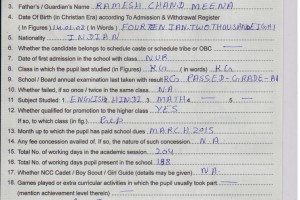 3. Father's / Guardian's Name RAMESH CHAND MEENA
4. Date Of Birth (in Christian Era) according to Admission & Withdrawal Register
(In Figures) 14.01.08 (in Words) FOURTEEN JAN-TWO THOUSAND EIGHT
5. Nationality INDIAN
6. Whether the candidate belongs to schedule caste or schedule tribe or OBC —
7. Date of first admission in the school with class NUR
8. Class in which the pupil last studied (In Figures) KG (in Words) KG
9. School / Board annual examination last taken with result KG PASSED-GRADE-A1
10. Whether failed, if so once / twice in the same class N.A
11. Subject Studied : 1. ENGLISH HINDI 3. MATH 4. — 5. —
12. Whether qualified for promotion to the higher class YES
If so, to which class (in fig.)
13. Month up to which the pupil has paid school dues MARCH 2015
14. Any fee concession availed of. If so, the nature of such concession N.A
15. Total No. of working days in the academic session 204
16. Total No. of working days pupil present in the school 198
17. Whether NCC Cadet / Boy Scout / Girl Guide (details may be given) N.A
18. Games played or extra curricular activities in which the pupil usually took part
(mention achievement level therein) —